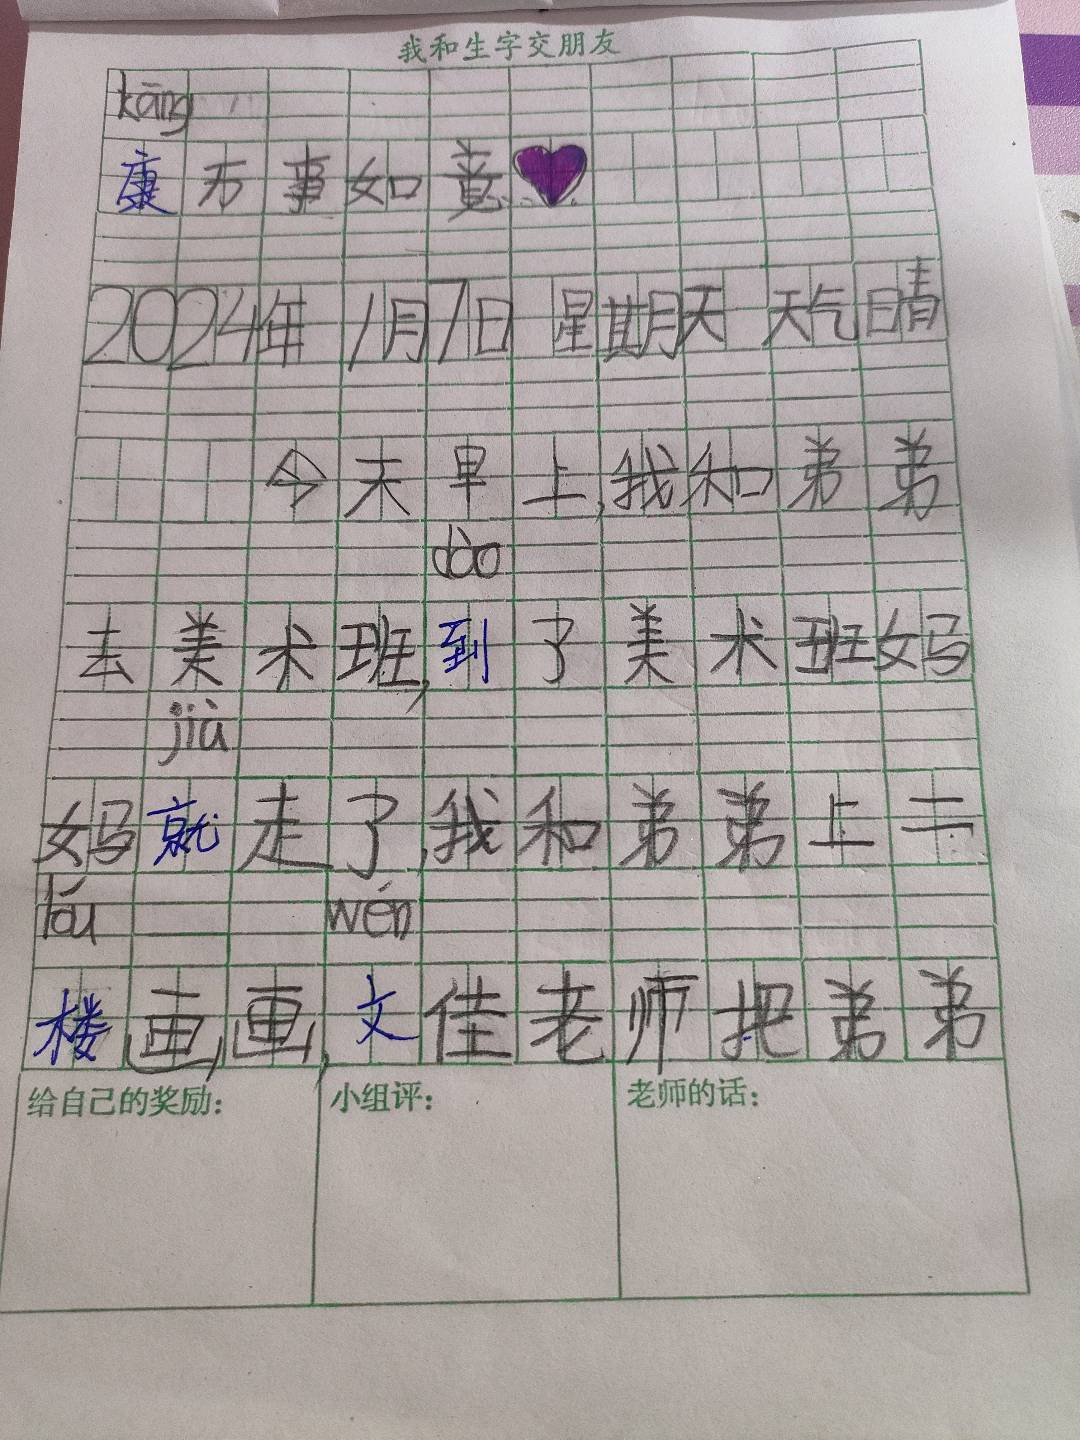 我和生字交朋友
kāng
康万事如意
2024年1月7日 星期天 天气晴
今天早上,我和弟弟
dào
去美术班,到了美术班妈
jiù
妈就走了,我和弟弟上二
lóu wén
楼画画,文佳老师把弟弟
给自己的奖励: 小组评: 老师的话: